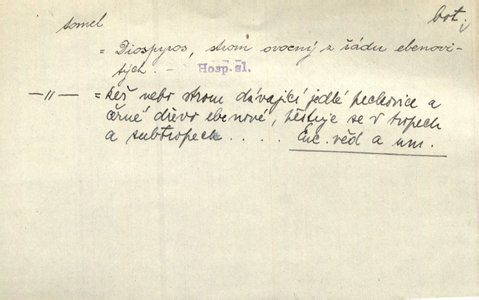 tomel bot.
= Diospyros, strom ovocný z řádu ebenovi-
tých. - Hosp. sl.
—„— = keř nebo strom dávající jedlé peckovice a
černé dřevo ebenové, pěstuje se v tropech
a subtropech . . . . . Enc. věd a um.